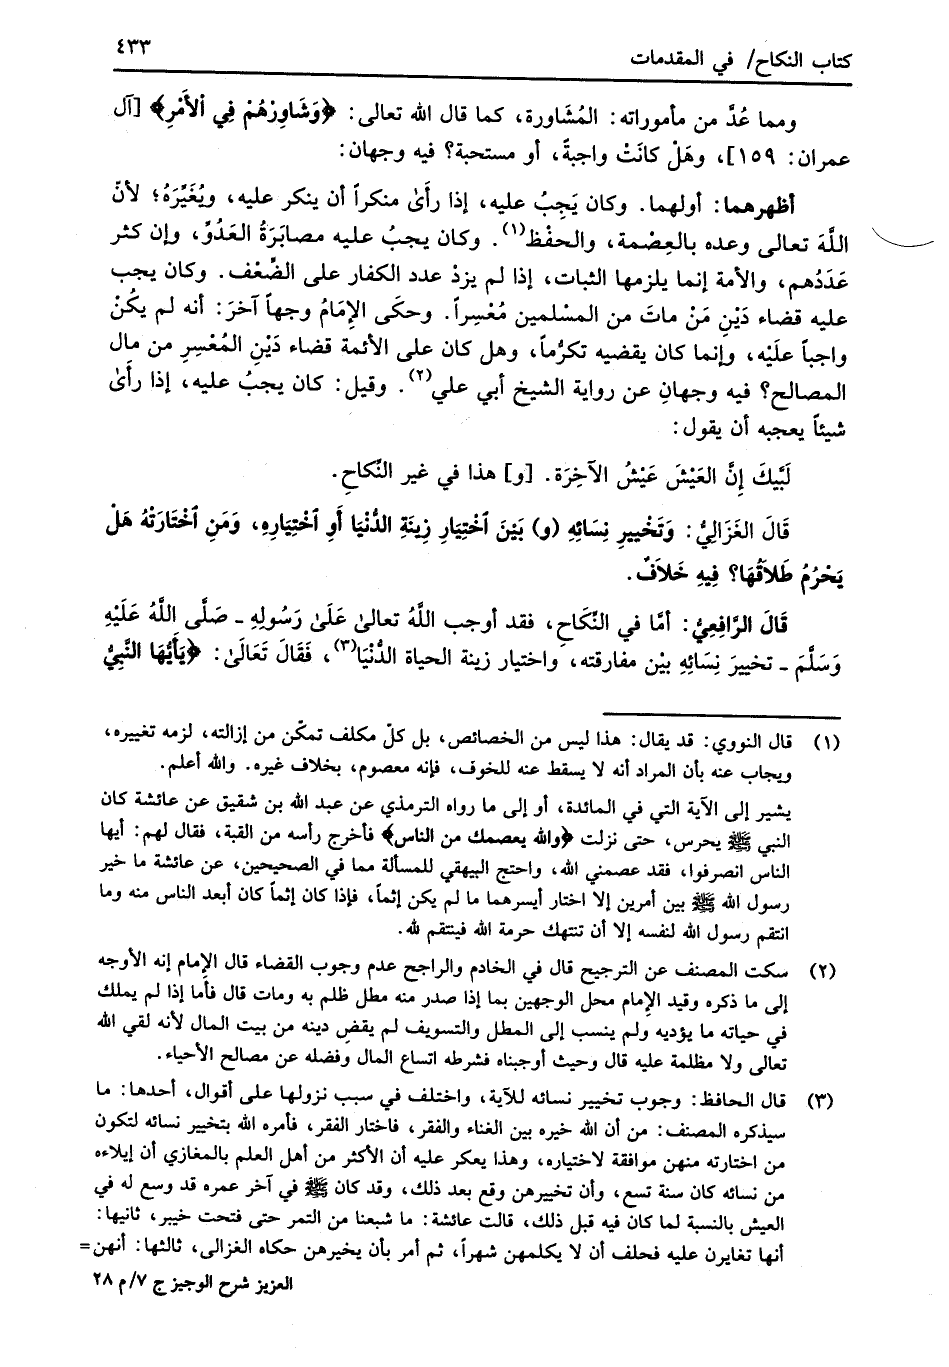 كتاب النكاح/ في المقدمات
٤٣٣
ومما عُدَّ من مأموراته: المُشَاورة، كما قال الله تعالى: ﴿وَشَاوِرْهُمْ فِي الأَمْرِ﴾ [آل
عمران: ١٥٩]، وهَلْ كانَتْ واجبةً، أو مستحبة؟ فيه وجهان:
أظهرهما: أولهما. وكان يَجِبُ عليه، إذا رأَىٰ منكراً أن ينكر عليه، ويُغَيِّرَهُ؛ لأنّ
اللَّهَ تعالى وعده بالعِصْمة، والحفْظ(١). وكان يجبُ عليه مصابَرَةُ العَدُوِّ، وإن كثر
عَدَدُهم، والأمة إنما يلزمها الثبات، إذا لم يزدْ عدد الكفار على الضِّعْف. وكان يجب
عليه قضاء دَيْنِ مَنْ ماتَ من المسْلمين مُعْسِراً. وحكَى الإِمَامُ وجهاً آخرَ: أنه لم يكُنْ
واجباً علَيْه، وإنما كان يقضيه تكرُّماً، وهل كان على الأئمة قضاء دَيْنِ المُعْسِرِ من مال
المصالح؟ فيه وجهانِ عن رواية الشيخ أبي علي(٢). وقيل: كان يجبُ عليه، إذا رأَىٰ
شيئاً يعجبه أن يقول:
لَبَّيكَ إِنَّ العَيْشَ عَيْشُ الآخِرَة. [و] هذا في غير النِّكاحِ.
قَالَ الغَزَالِيُّ: وَتَخْييرِ نِسَائِهِ (و) بَيْنَ ٱخْتِيَارِ زِينَةِ الدُّنْيَا أَوِ ٱخْتِيَارِهِ، وَمَنِ ٱخْتَارَتْهُ هَلْ
يَحْرُمُ طَلاَقُهَا؟ فِيهِ خَلاَفٌ.
قَالَ الرَّافِعِيُّ: أمَّا في النِّكَاحِ، فقد أوجب اللَّهُ تعالىٰ عَلَىٰ رَسُولِهِ - صَلَّى اللَّهُ عَلَيْهِ
وَسَلَّمَ - تخييرَ نِسَائِهِ بيْن مفارقته، واختيار زينة الحياة الدُّنْيَا(٣)، فَقَالَ تَعَالَىٰ: ﴿يَأَيُّهَا النَّبِيُّ
(١) قال النووي: قد يقال: هذا ليس من الخصائص، بل كلّ مكلف تمكّن من إزالته، لزمه تغييره،
ويجاب عنه بأن المراد أنه لا يسقط عنه للخوف، فإنه معصوم، بخلاف غيره. والله أعلم.
يشير إلى الآية التي في المائدة، أو إلى ما رواه الترمذي عن عبد الله بن شقيق عن عائشة كان
النبي ﷺ يحرس، حتى نزلت ﴿والله يعصمك من الناس﴾ فأخرج رأسه من القبة، فقال لهم: أيها
الناس انصرفوا، فقد عصمني الله، واحتج البيهقي للمسألة مما في الصحيحين، عن عائشة ما خير
رسول الله ﷺ بين أمرين إلا اختار أيسرهما ما لم يكن إثماً، فإذا كان إثماً كان أبعد الناس منه وما
انتقم رسول الله لنفسه إلا أن تنتهك حرمة الله فينتقم لله.
(٢) سكت المصنف عن الترجيح قال في الخادم والراجح عدم وجوب القضاء قال الإمام إنه الأوجه
إلى ما ذكره وقيد الإمام محل الوجهين بما إذا صدر منه مطل ظلم به ومات قال فأما إذا لم يملك
في حياته ما يؤديه ولم ينسب إلى المطل والتسويف لم يقض دينه من بيت المال لأنه لقي الله
تعالى ولا مظلمة عليه قال وحيث أوجبناه فشرطه اتساع المال وفضله عن مصالح الأحياء.
(٣) قال الحافظ: وجوب تخيير نسائه للآية، واختلف في سبب نزولها على أقوال، أحدها: ما
سيذكره المصنف: من أن الله خيره بين الغناء والفقر، فاختار الفقر، فأمره الله بتخيير نسائه لتكون
من اختارته منهن موافقة لاختياره، وهذا يعكر عليه أن الأكثر من أهل العلم بالمغازي أن إيلاءه
من نسائه كان سنة تسع، وأن تخييرهن وقع بعد ذلك، وقد كان ﷺ في آخر عمره قد وسع له في
العيش بالنسبة لما كان فيه قبل ذلك، قالت عائشة: ما شبعنا من التمر حتى فتحت خيبر، ثانيها:
أنها تغايرن عليه فحلف أن لا يكلمهن شهراً، ثم أمر بأن يخيرهن حكاه الغزالى، ثالثها: أنهن=
العزيز شرح الوجيز ج ٧/ م ٢٨